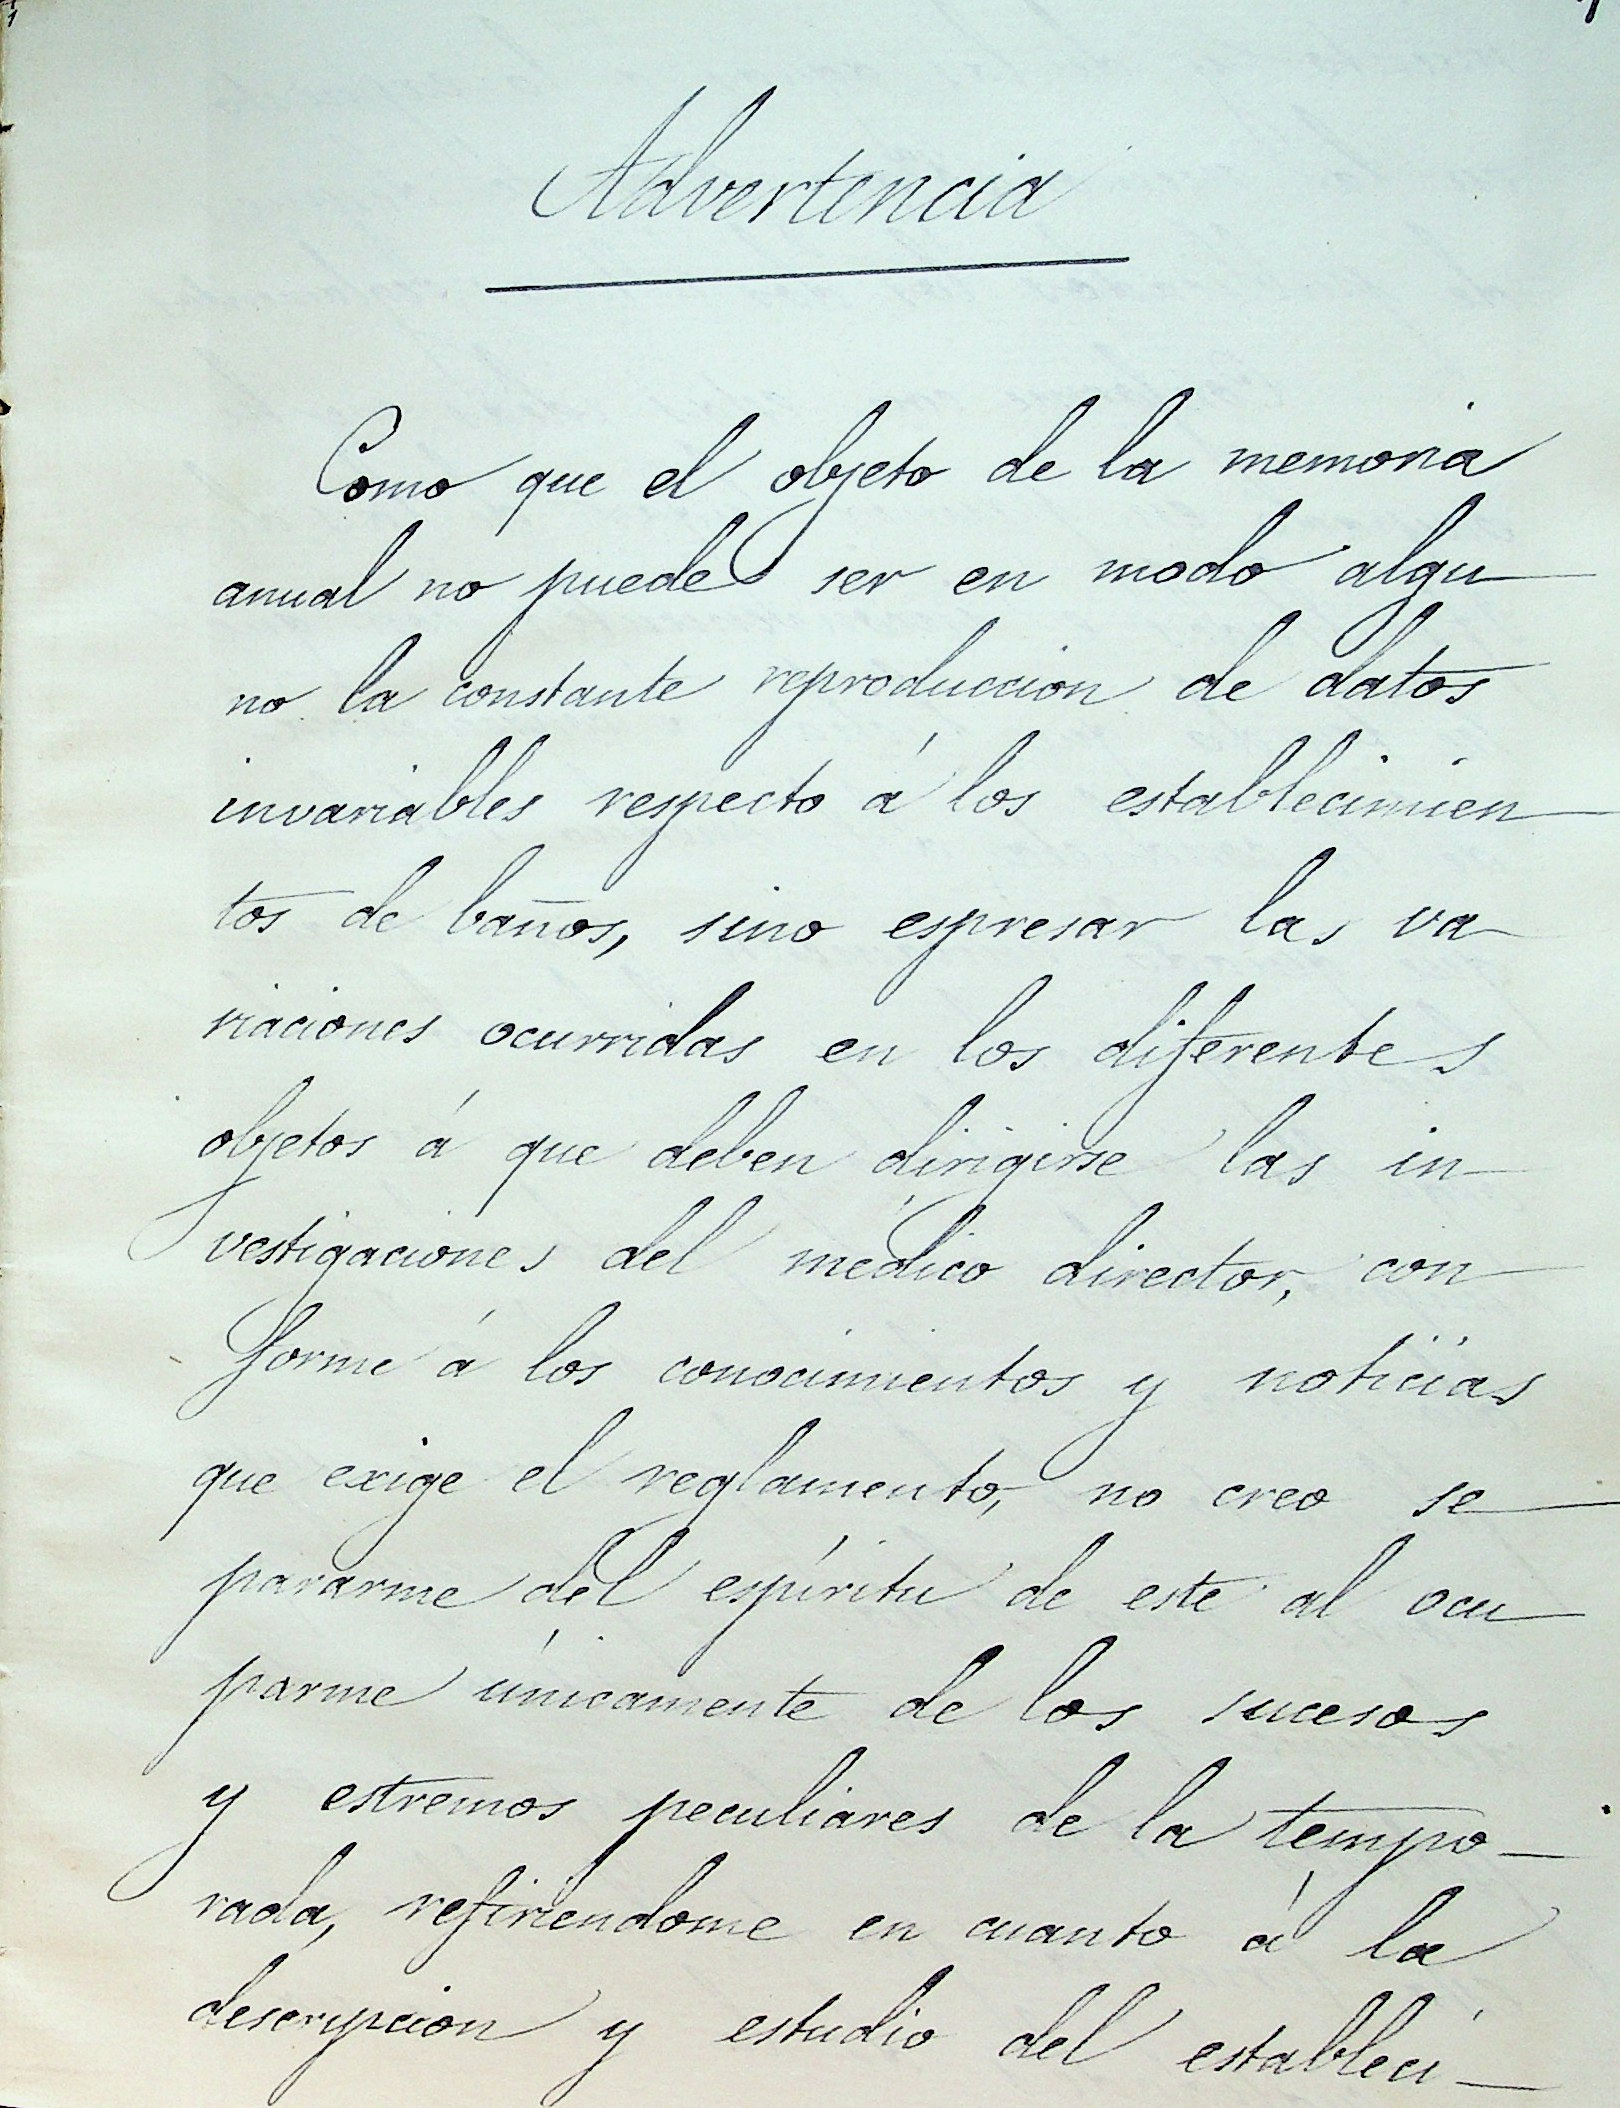 Advertencia
Como que el objeto de la memoria
anual no puede ser en modo algu
no la constante reproduccion de datos
invariables respecto á los establecimien
tos de baños, sino espresar las va
riaciones ocurridas en los diferentes
objetos á que deben dirigirse las in
vestigaciones del médico director, con
forme á los conocimientos y noticias
que exige el reglamento, no creo se
pararme del espíritu de este al ocu
parme únicamente de los sucesos
y estremos peculiares de la tempo-
rada, refiriendome en cuanto á la
descripcion y estudio del estableci-